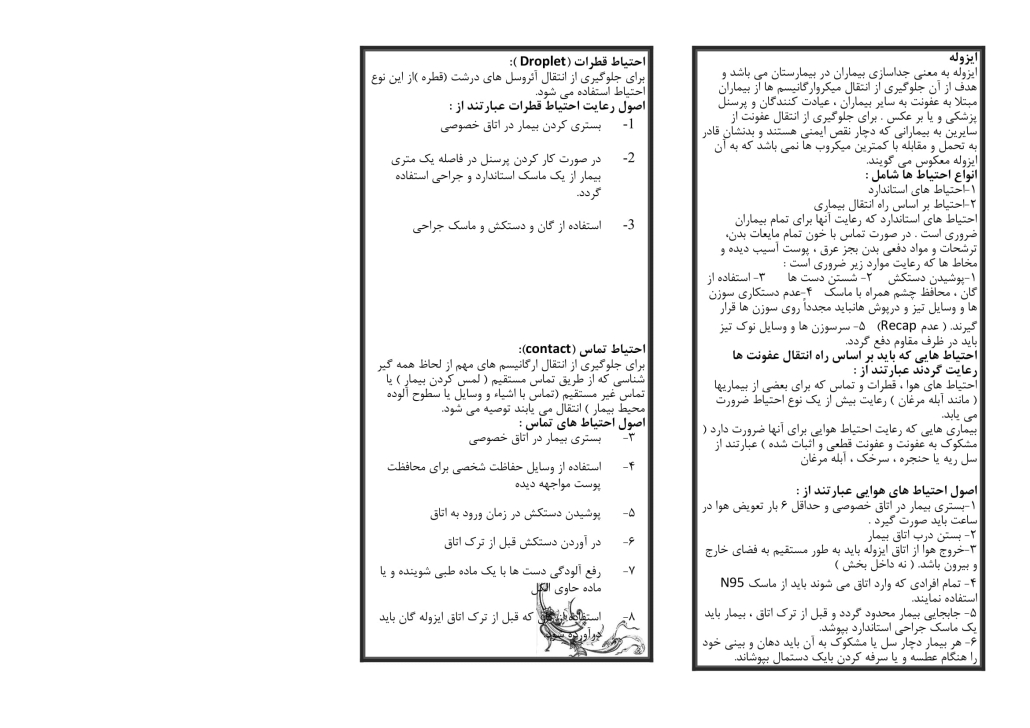 ایزوله
ایزوله به معنی جداسازی بیماران در بیمارستان می باشد و
هدف از آن جلوگیری از انتقال میکروارگانیسم ها از بیماران
مبتلا به عفونت به سایر بیماران ، عیادت کنندگان و پرسنل
پزشکی و یا بر عکس . برای جلوگیری از انتقال عفونت از
سایرین به بیمارانی که دچار نقص ایمنی هستند و بدنشان قادر
به تحمل و مقابله با کمترین میکروب ها نمی باشد که به آن
ایزوله معکوس می گویند.
انواع احتیاط ها شامل :
۱-احتیاط های استاندارد
۲-احتیاط بر اساس راه انتقال بیماری
احتیاط های استاندارد که رعایت آنها برای تمام بیماران
ضروری است . در صورت تماس با خون تمام مایعات بدن،
ترشحات و مواد دفعی بدن بجز عرق ، پوست آسیب دیده و
مخاط ها که رعایت موارد زیر ضروری است :
۱-پوشیدن دستکش ۲- شستن دست ها ۳- استفاده از
گان ، محافظ چشم همراه با ماسک ۴-عدم دستکاری سوزن
ها و وسایل تیز و درپوش هانباید مجدداً روی سوزن ها قرار
گیرند. ( عدم Recap) ۵- سرسوزن ها و وسایل نوک تیز
باید در ظرف مقاوم دفع گردد.
احتیاط هایی که باید بر اساس راه انتقال عفونت ها
رعایت گردند عبارتند از :
احتیاط های هوا ، قطرات و تماس که برای بعضی از بیماریها
( مانند آبله مرغان ) رعایت بیش از یک نوع احتیاط ضرورت
می یابد.
بیماری هایی که رعایت احتیاط هوایی برای آنها ضرورت دارد (
مشکوک به عفونت و عفونت قطعی و اثبات شده ) عبارتند از
سل ریه یا حنجره ، سرخک ، آبله مرغان
اصول احتیاط های هوایی عبارتند از :
۱-بستری بیمار در اتاق خصوصی و حداقل ۶ بار تعویض هوا در
ساعت باید صورت گیرد .
۲- بستن درب اتاق بیمار
۳-خروج هوا از اتاق ایزوله باید به طور مستقیم به فضای خارج
و بیرون باشد. ( نه داخل بخش )
۴- تمام افرادی که وارد اتاق می شوند باید از ماسک N95
استفاده نمایند.
۵- جابجایی بیمار محدود گردد و قبل از ترک اتاق ، بیمار باید
یک ماسک جراحی استاندارد بپوشد.
۶- هر بیمار دچار سل یا مشکوک به آن باید دهان و بینی خود
را هنگام عطسه و یا سرفه کردن بایک دستمال بپوشاند.
احتیاط قطرات (Droplet ):
برای جلوگیری از انتقال آئروسل های درشت (قطره )از این نوع
احتیاط استفاده می شود.
اصول رعایت احتیاط قطرات عبارتند از :
1- بستری کردن بیمار در اتاق خصوصی
2- در صورت کار کردن پرسنل در فاصله یک متری
بیمار از یک ماسک استاندارد و جراحی استفاده
گردد.
3- استفاده از گان و دستکش و ماسک جراحی
احتیاط تماس (contact):
برای جلوگیری از انتقال ارگانیسم های مهم از لحاظ همه گیر
شناسی که از طریق تماس مستقیم ( لمس کردن بیمار ) یا
تماس غیر مستقیم (تماس با اشیاء و وسایل یا سطوح آلوده
محیط بیمار ) انتقال می یابند توصیه می شود.
اصول احتیاط های تماس :
۳- بستری بیمار در اتاق خصوصی
۴- استفاده از وسایل حفاظت شخصی برای محافظت
پوست مواجهه دیده
۵- پوشیدن دستکش در زمان ورود به اتاق
۶- در آوردن دستکش قبل از ترک اتاق
۷- رفع آلودگی دست ها با یک ماده طبی شوینده و یا
ماده حاوی الکل
۸- استفاده از گان که قبل از ترک اتاق ایزوله گان باید
درآورده شود.